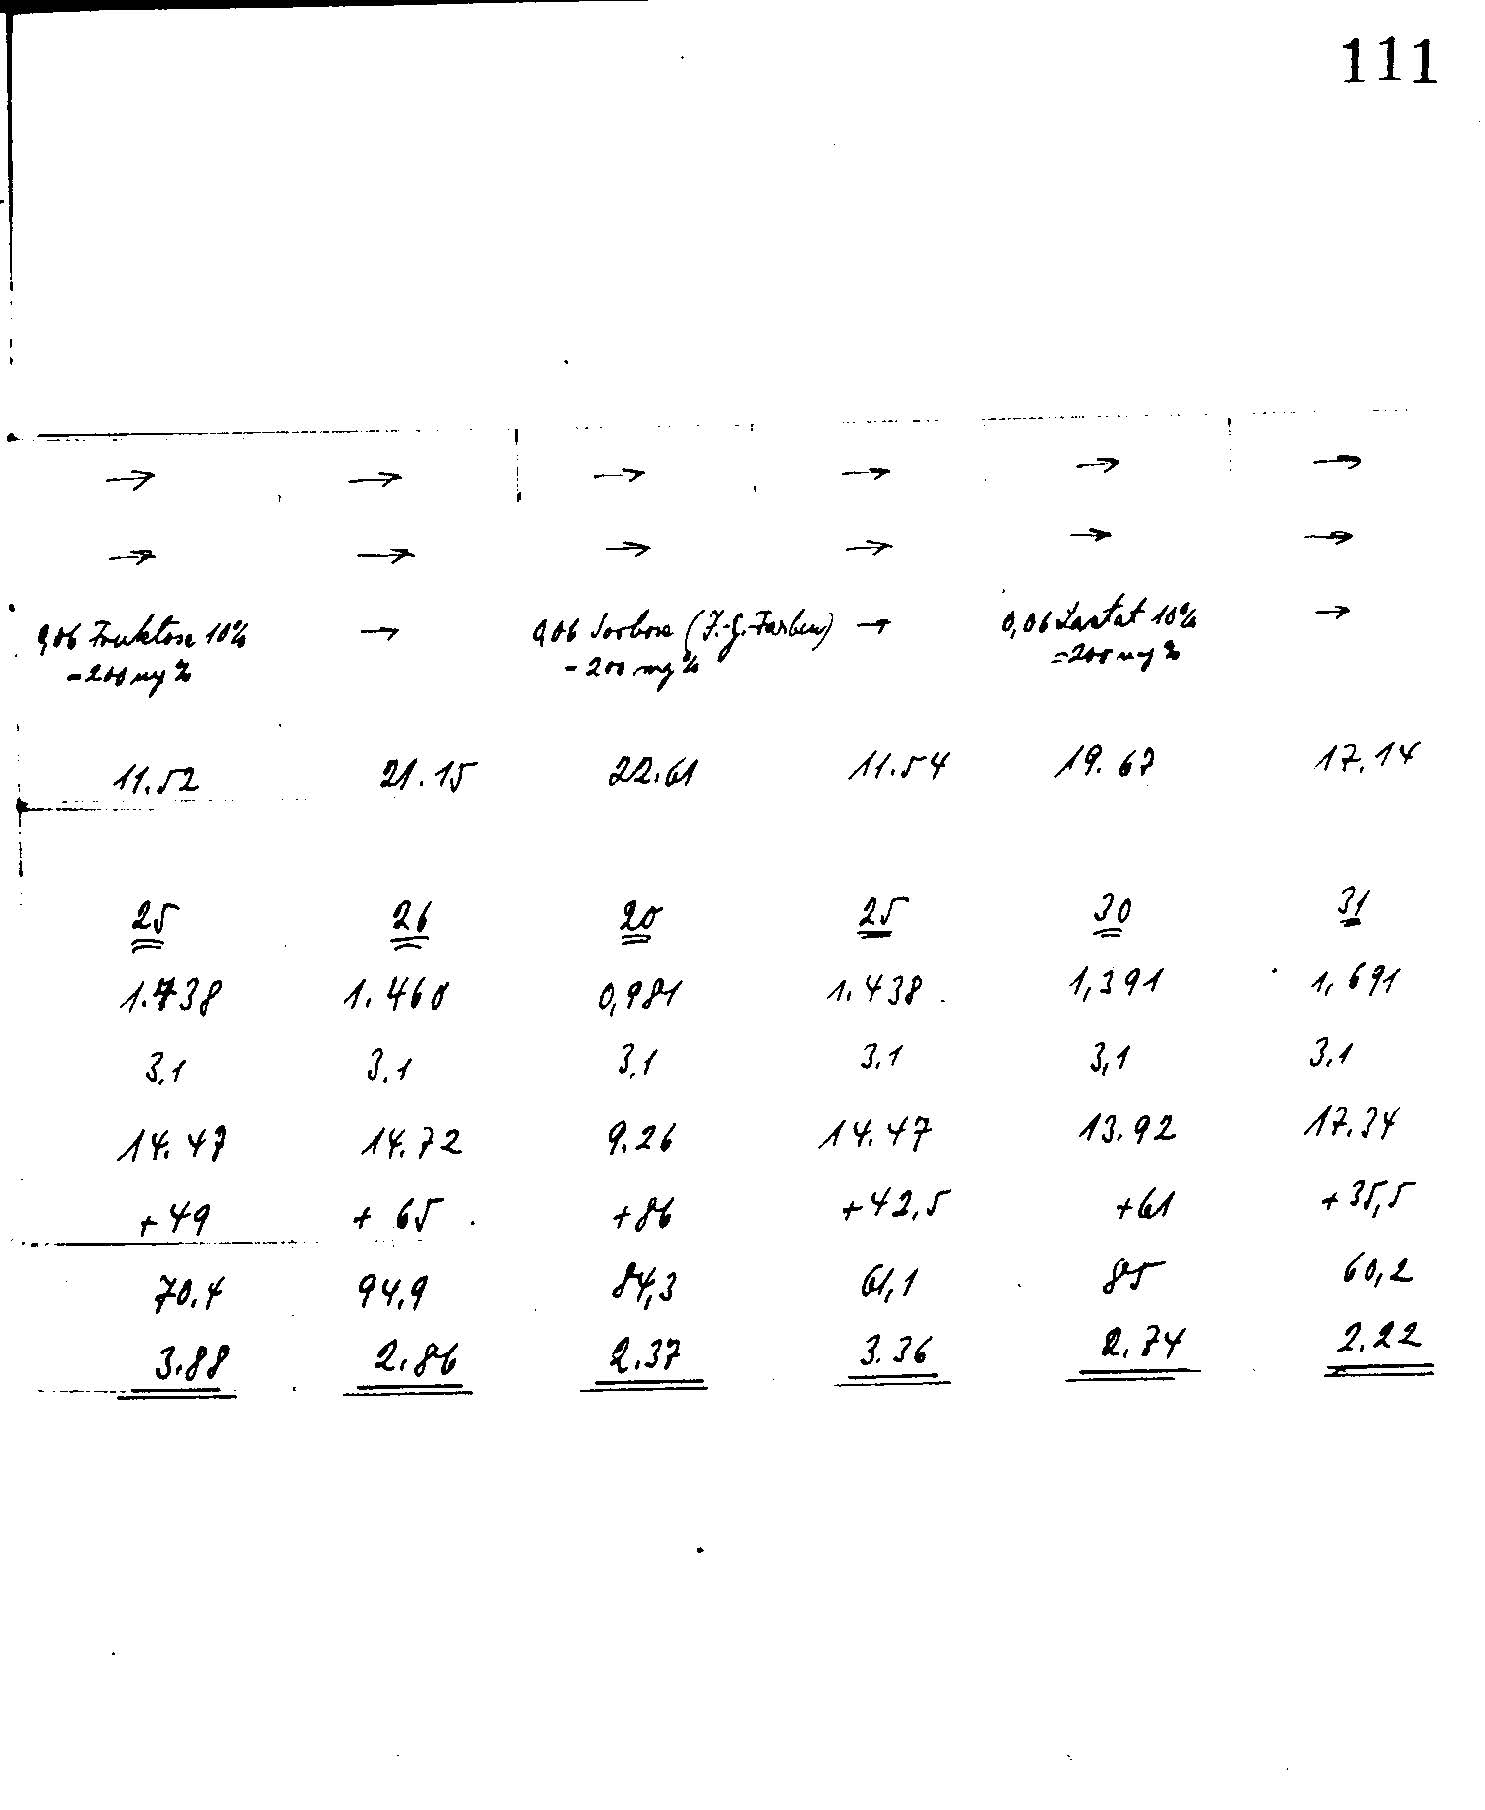 111
→ → → → → →
→ → → → → →
0,06 Fruktose 10% → 0,06 Sorbose (J.-G.-Farben) → 0,06 Laktat 10% →
=200 mg% =200 mg% =200 mg%
11.52 21.15 22.61 11.54 19.67 17.14
25 26 20 25 30 31
1.738 1.460 0,981 1.438 1,391 1,691
3.1 3.1 3.1 3.1 3,1 3.1
14.47 14.72 9.26 14.47 13.92 17.34
+49 +65 +86 +42,5 +61 +35,5
70.4 94.9 84,3 61,1 85 60,2
3.88 2.86 2.37 3.36 2.74 2.22